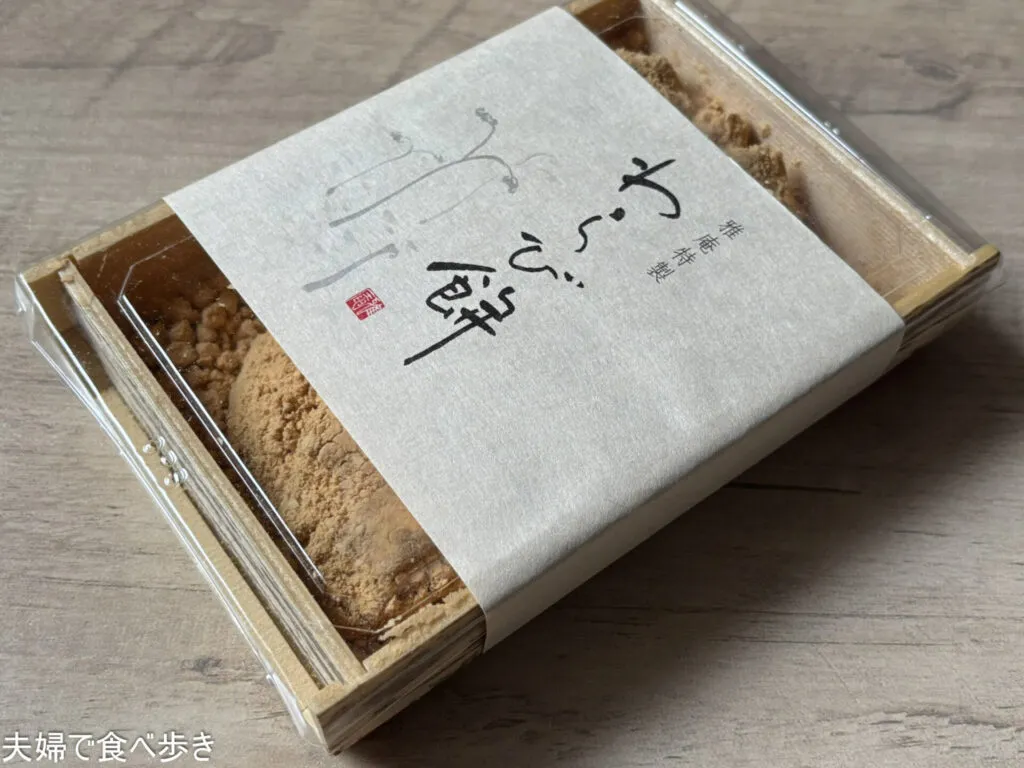 雅庵特製
わらび餅
夫婦で食べ歩き